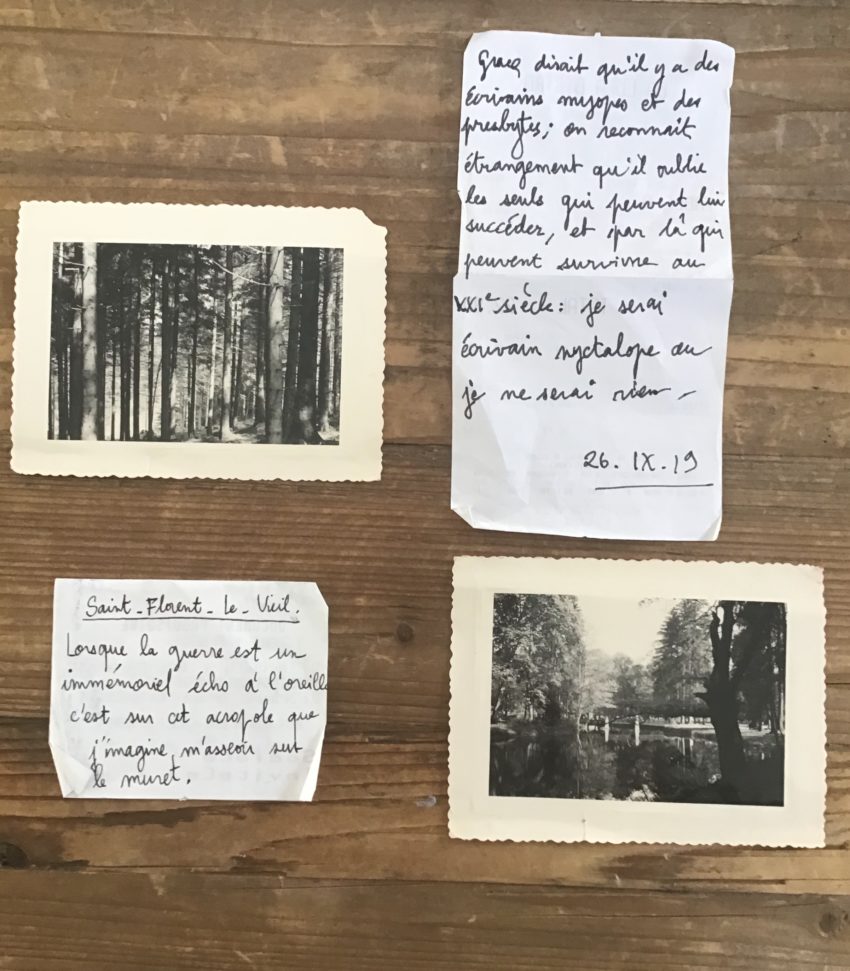 Gracq disait qu'il y a des
écrivains myopes et des
presbytes; on reconnait
étrangement qu'il oublie
les seuls qui peuvent lui
succéder, et par là qui
peuvent survivre au
XXIe siècle: je serai
écrivain nyctalope ou
je ne serai rien -
26. IX. 19
Saint-Florent-Le-Vieil.
Lorsque la guerre est un
immémoriel écho à l'oreille
c'est sur cet acropole que
j'imagine m'asseoir sur
le muret.